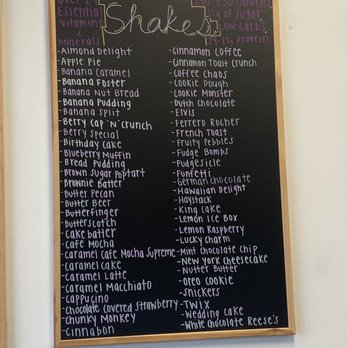 Shakes
Essential
Vitamins
&
Minerals
of Sugar
Low Carbs
Protein
-Almond Delight
-Apple Pie
-Banana Caramel
-Banana Foster
-Banana Nut Bread
-Banana Pudding
-Banana Split
-Berry Cap 'N' Crunch
-Berry Special
-Birthday Cake
-Blueberry Muffin
-Bread Pudding
-Brown Sugar Poptart
-Brownie Batter
-Butter Pecan
-Butter Beer
-Butterfinger
-Butterscotch
-Cake Batter
-Café Mocha
-Caramel Café Mocha Supreme
-Caramel Cake
-Caramel Latte
-Caramel Macchiato
-Cappucino
-Chocolate Covered Strawberry
-Chunky Monkey
-Cinnabon
-Cinnamon Coffee
-Cinnamon Toast Crunch
-Coffee Chaos
-Cookie Dough
-Cookie Monster
-Dutch Chocolate
-Elvis
-Ferrero Rocher
-French Toast
-Fruity Pebbles
-Fudge Bombs
-Fudgesicle
-Funfetti
-German Chocolate
-Hawaiian Delight
-Haystack
-King Cake
-Lemon Ice Box
-Lemon Raspberry
-Lucky Charm
-Mint Chocolate Chip
-New York Cheesecake
-Nutter Butter
-Oreo Cookie
-Snickers
-Twix
-Wedding Cake
-White Chocolate Reese's